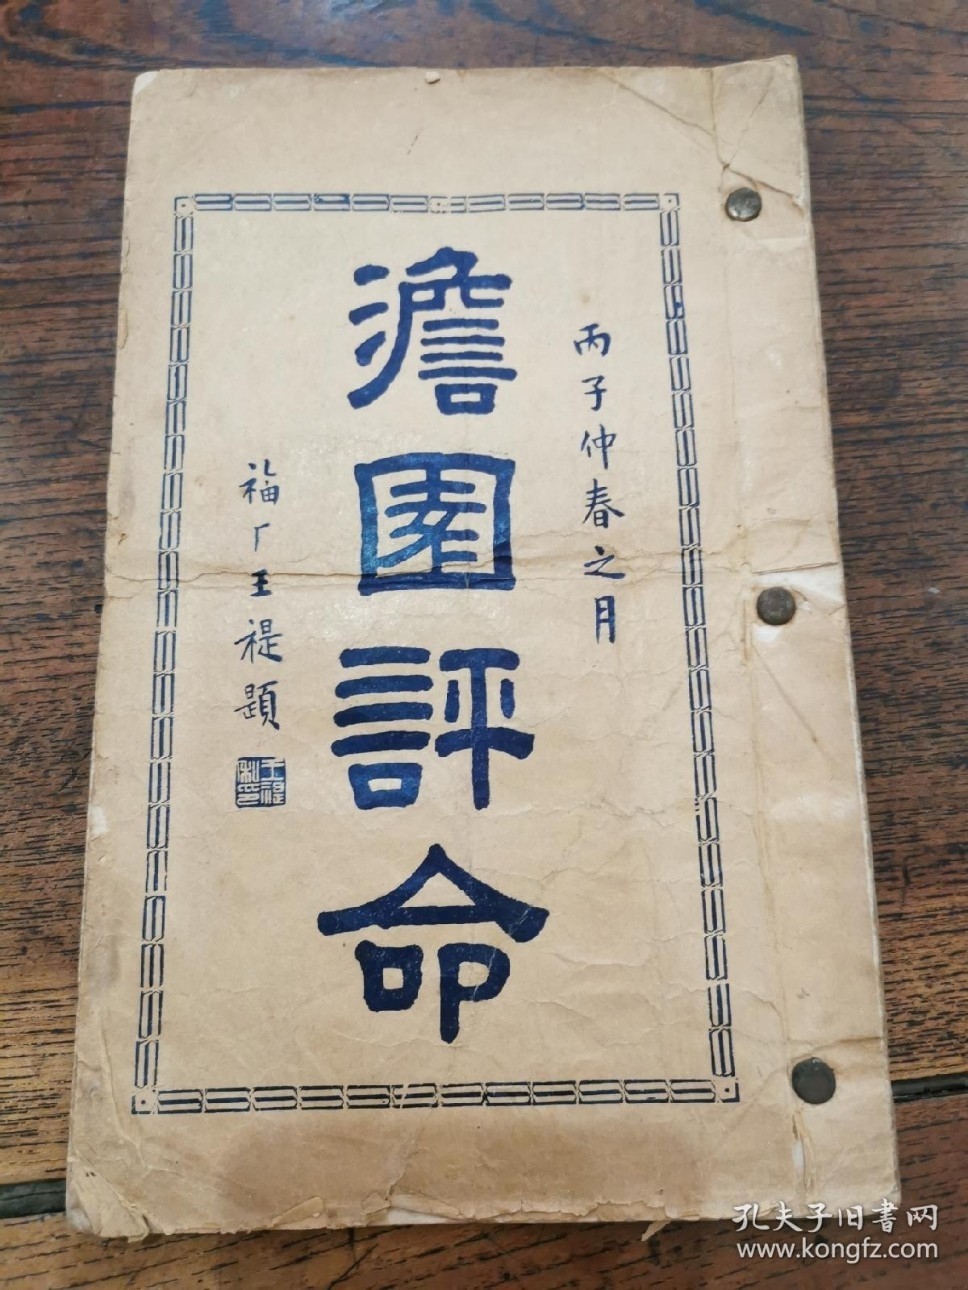 丙子仲春之月
澹園評命
福厂王禔題
王禔私印
孔夫子旧書网
www.kongfz.com